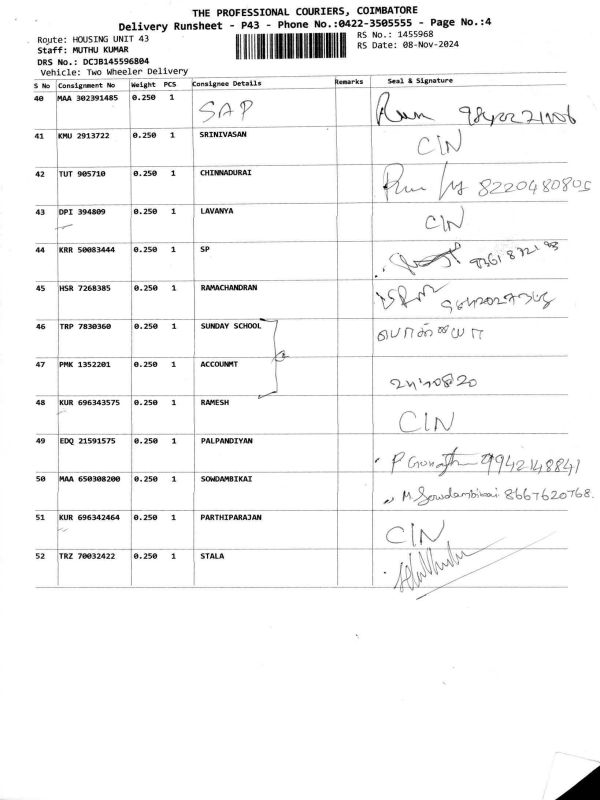 THE PROFESSIONAL COURIERS, COIMBATORE
Delivery Runsheet - P43 - Phone No.:0422-3505555 - Page No.:4
Route: HOUSING UNIT 43 RS No.: 1455968
Staff: MUTHU KUMAR RS Date: 08-Nov-2024
DRS No.: DCJB145596804
Vehicle: Two Wheeler Delivery
S No Consignment No Weight PCS Consignee Details Remarks Seal & Signature
40 MAA 302391485 0.250 1 SAP
41 KMU 2913722 0.250 1 SRINIVASAN CIN
42 TUT 905710 0.250 1 CHINNADURAI 8220480805
43 DPI 394809 0.250 1 LAVANYA CIN
44 KRR 50083444 0.250 1 SP
45 HSR 7268385 0.250 1 RAMACHANDRAN
46 TRP 7830360 0.250 1 SUNDAY SCHOOL
47 PMK 1352201 0.250 1 ACCOUNMT
48 KUR 696343575 0.250 1 RAMESH CIN
49 EDQ 21591575 0.250 1 PALPANDIYAN 9942148841
50 MAA 650308200 0.250 1 SOWDAMBIKAI M. Sowdambikai 8667620768.
51 KUR 696342464 0.250 1 PARTHIPARAJAN CIN
52 TRZ 70032422 0.250 1 STALA